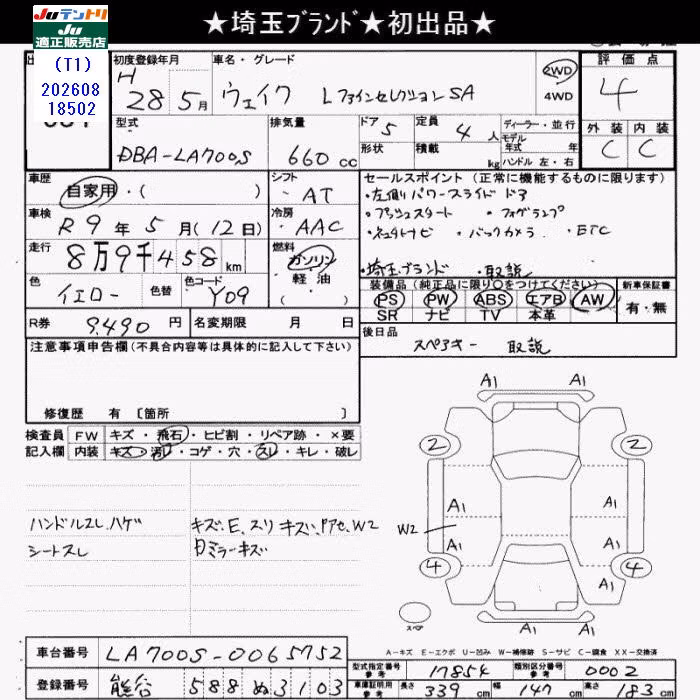 ★埼玉ブランド★初出品★
Juテントリ
Ju
適正販売店
(T1)
202608
18502
初度登録年月
車名・グレード
評価点
H
28 5月
ウェイク LファインセレクションSA
2WD
4WD
4
外装 内装
C C
型式
DBA-LA700S
排気量
660 cc
ドア 5
形状
定員 4 人
積載 kg
ディーラー・並行
モデル
年式 年
ハンドル 左・右
車歴
自家用・( )
シフト
AT
セールスポイント(正常に機能するものに限ります)
・左側パワースライドドア
・プッシュスタート ・フォグランプ
・バックカメラ ・ETC
・埼玉ブランド ・取説
車検
R 9年 5月(12日)
冷房
AAC
走行
8万9千458 km
燃料
ガソリン
軽油
( )
色
イエロー
色替
色コード
Y09
装備品(純正品に限り○をつけてください)
PS PW ABS エアB AW
SR ナビ TV 本革
新車保証書
有・無
R券
9,490 円
名変期限 月 日
後日品
スペアキー 取説
注意事項申告欄(不具合内容等は具体的に記入して下さい)
修復歴 有 〔箇所 〕
検査員
記入欄
FW キズ・飛石・ヒビ割・リペア跡・×要
内装 キズ・汚レ・コゲ・穴・スレ・キレ・破レ
ハンドルスレ、ハゲ
シートスレ
A1
A1
2 2
A1 A1
W2
A1 A1
4 4
A1
A1
スペア
A-キズ E-エクボ U-凹み W-補修跡 S-サビ C-腐食 XX-交換済
車台番号
LA700S-0065752
登録番号
熊谷 588 ぬ 3103
型式指定番号
参考
17854
類別区分番号
参考
0002
車庫証明用
参考
長さ 339 cm
幅 147 cm
高さ 183 cm